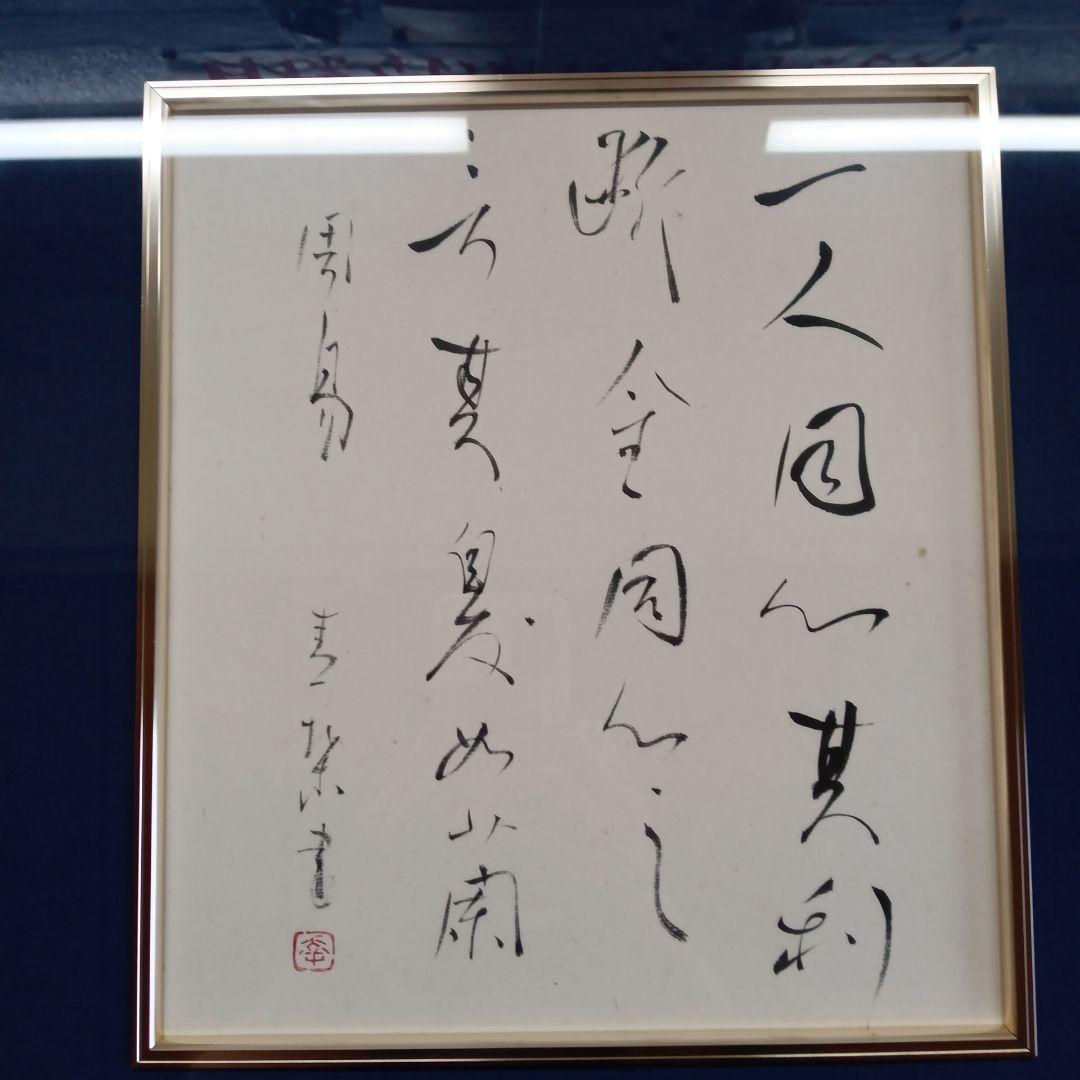 二人同心其利
断金同心之
言其臭如蘭
周易 書